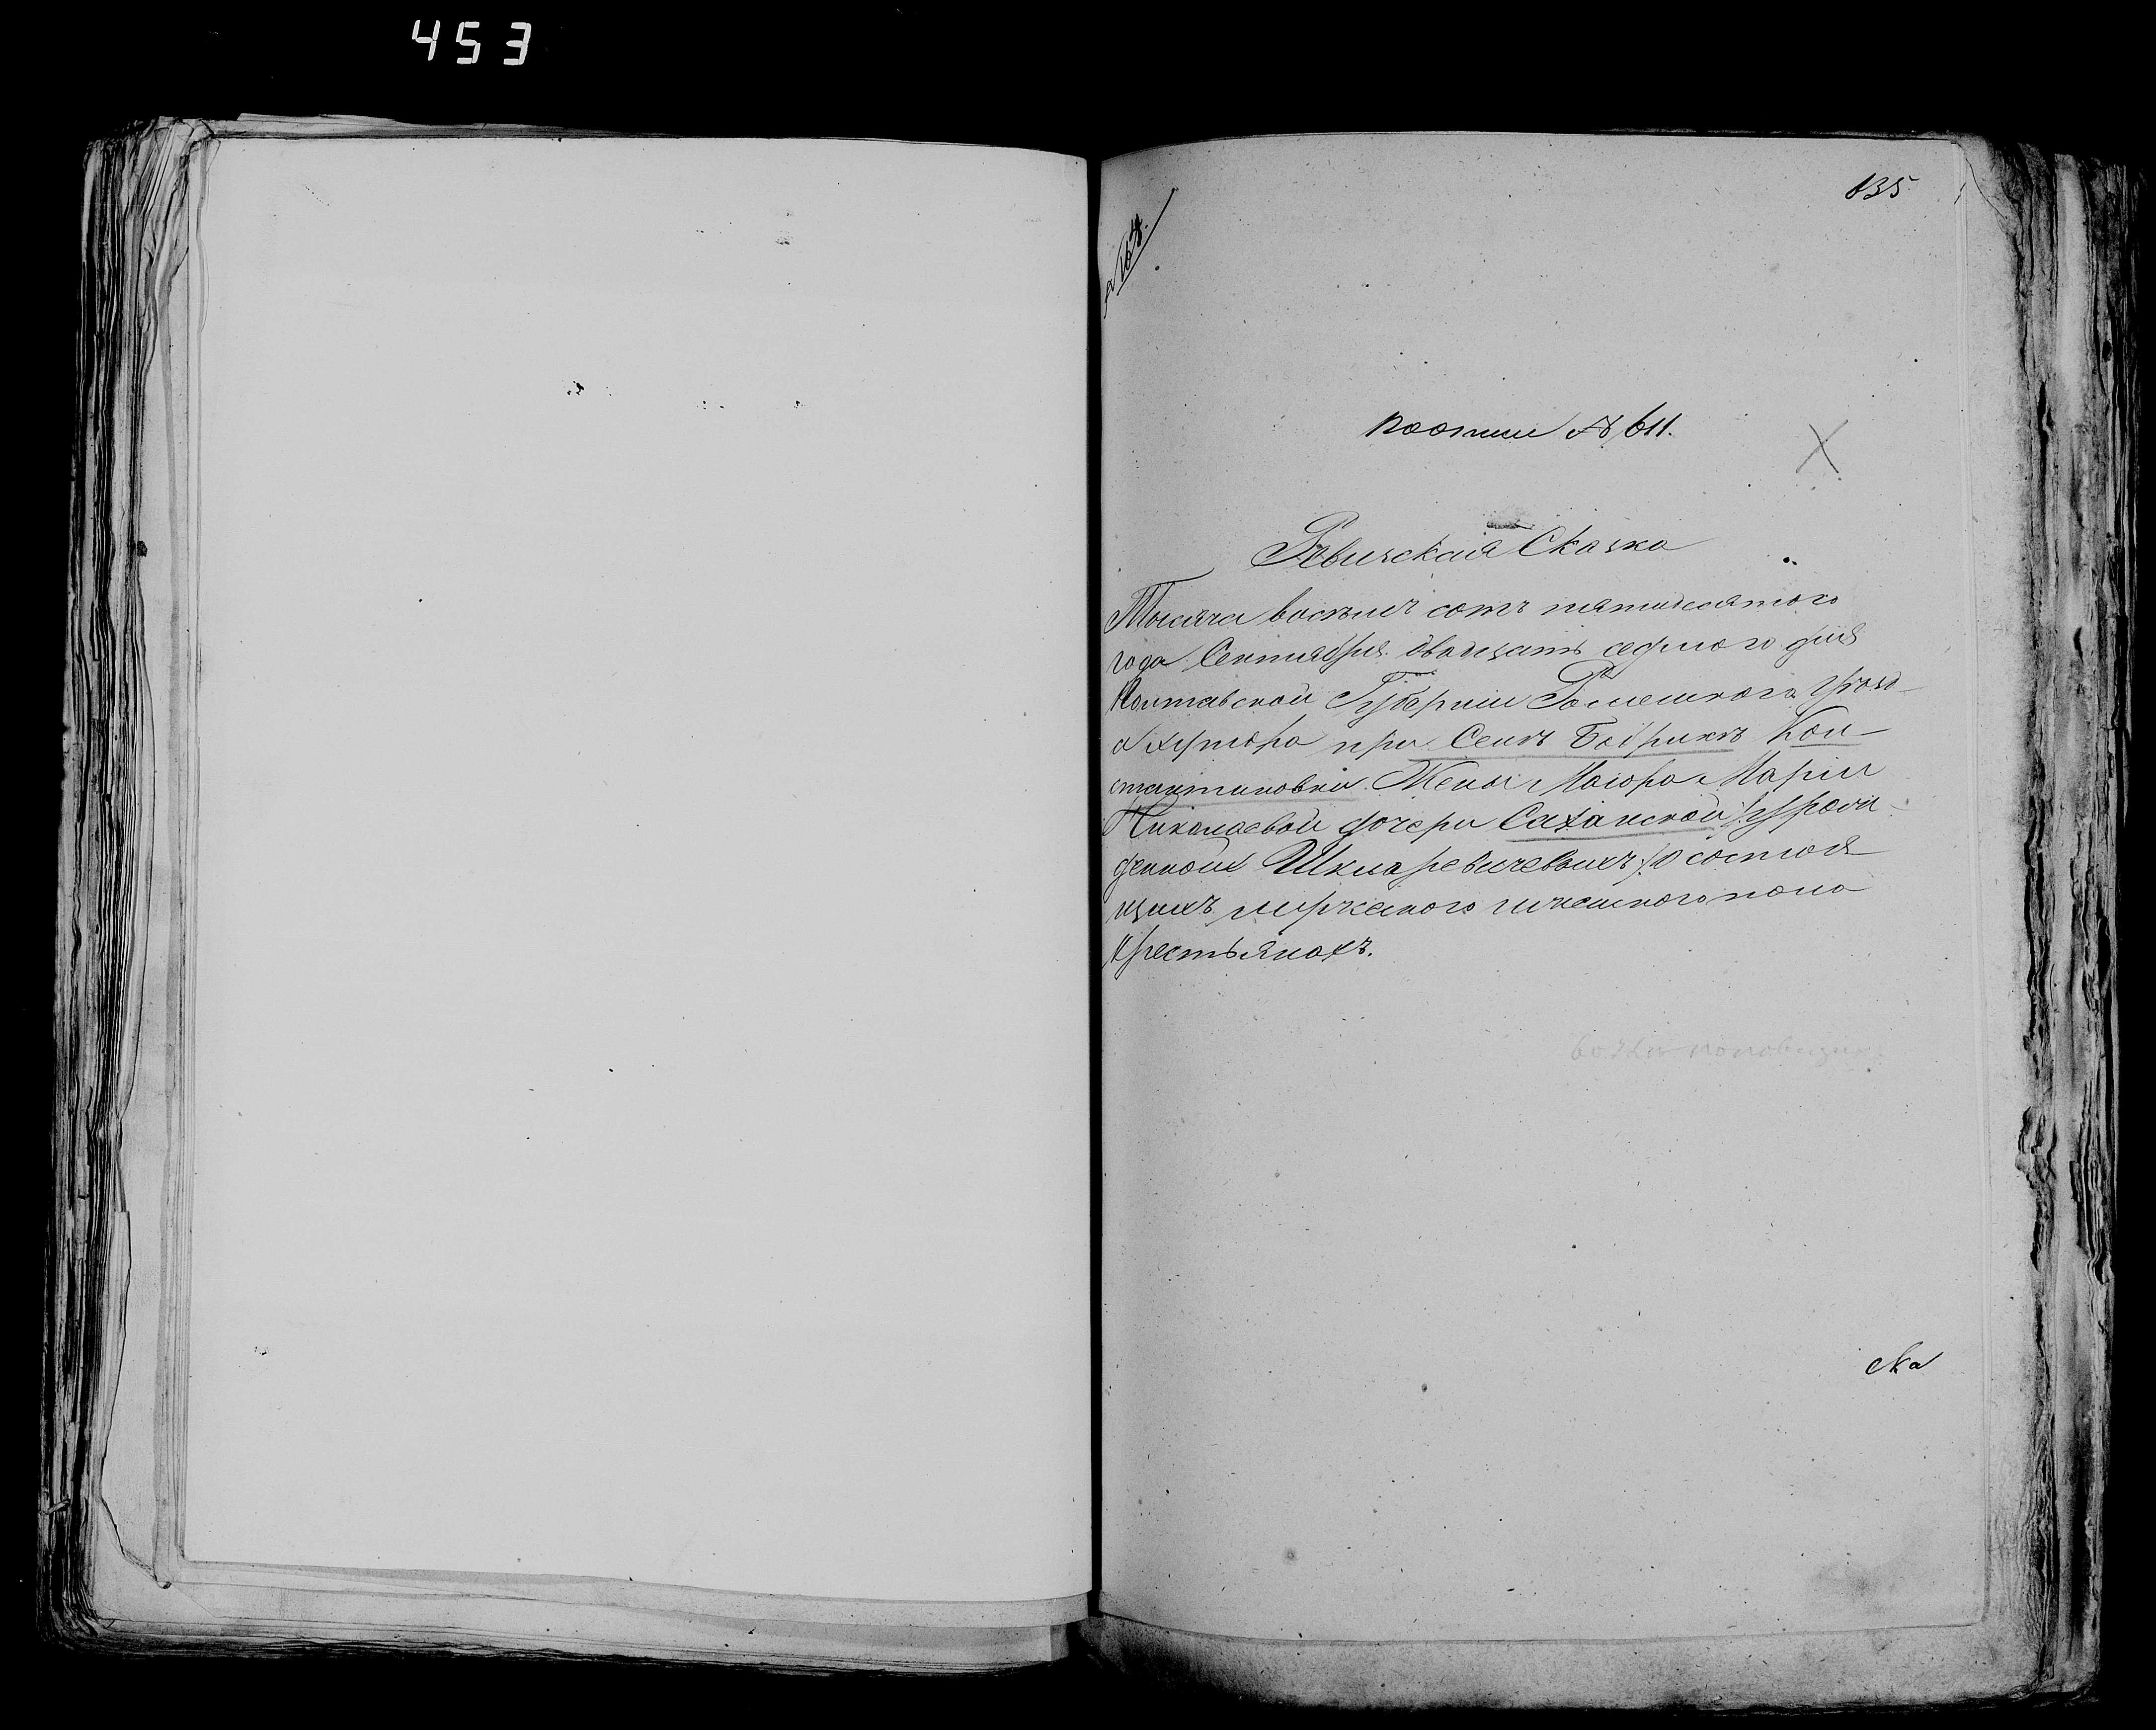 453
835
№ 167.
по описи № 611.
Ревизская Сказка
Тысяча восемъ сотъ пятидесятого
года Сентября двадцать седмого дня
Полтавской Губернии Роменского уѣзд-
а хутора при Селѣ Бобрикѣ Кон-
стантиновки Жены Маіора Маріи
Николаевой дочери Саханской /: урожи-
денной Шкларевичевыхъ :/ о состоя
щихъ мужеского и женского пола
крестьянахъ.
поповщина
Ска